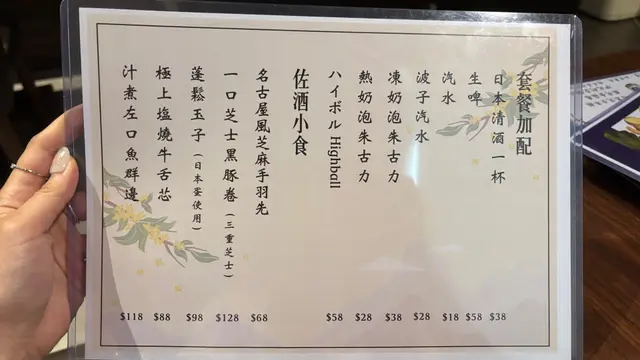 套餐加配
日本清酒一杯 $38
生啤 $58
汽水 $18
波子汽水 $28
凍奶泡朱古力 $38
熱奶泡朱古力 $28
ハイボル Highball $58
佐酒小食
名古屋風芝麻手羽先 $68
一口芝士黑豚卷(三重芝士) $128
蓬鬆玉子(日本蛋使用) $98
極上塩燒牛舌芯 $88
汁煮左口魚群邊 $118